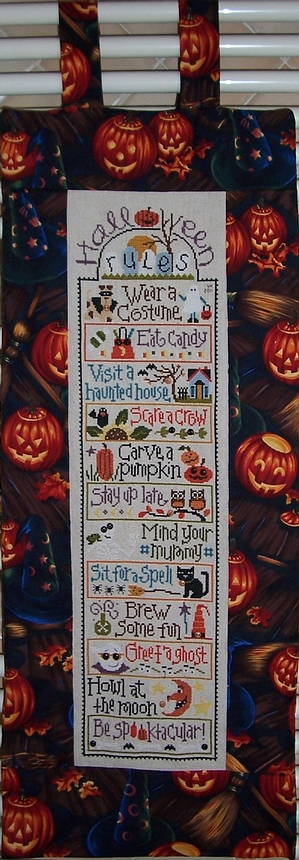 Halloween
rules
Wear a
Costume
Eat candy
Visit a
haunted house
Scare a crow
Carve a
pumpkin
Stay up late
Mind your
mummy
Sit for a Spell
Brew
some fun
Greet a ghost
Howl at
the moon
Be spooktacular!